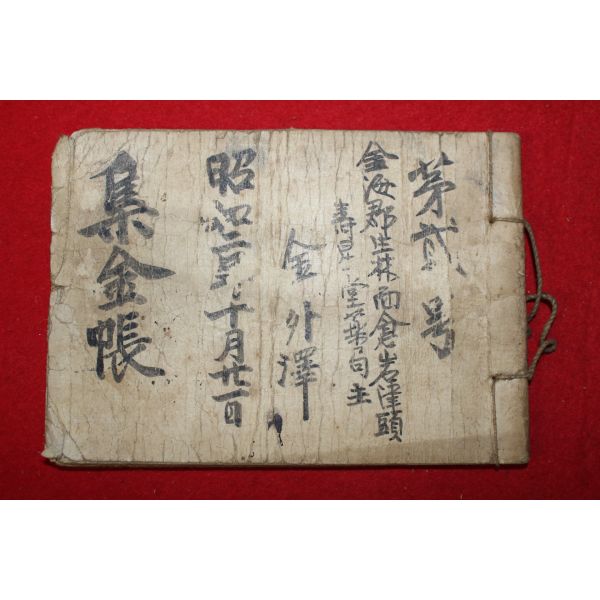 苐貳号
金海郡生林面倉岩津頭
堂藥局主
金外澤
昭和二年十月廿一日
集金帳